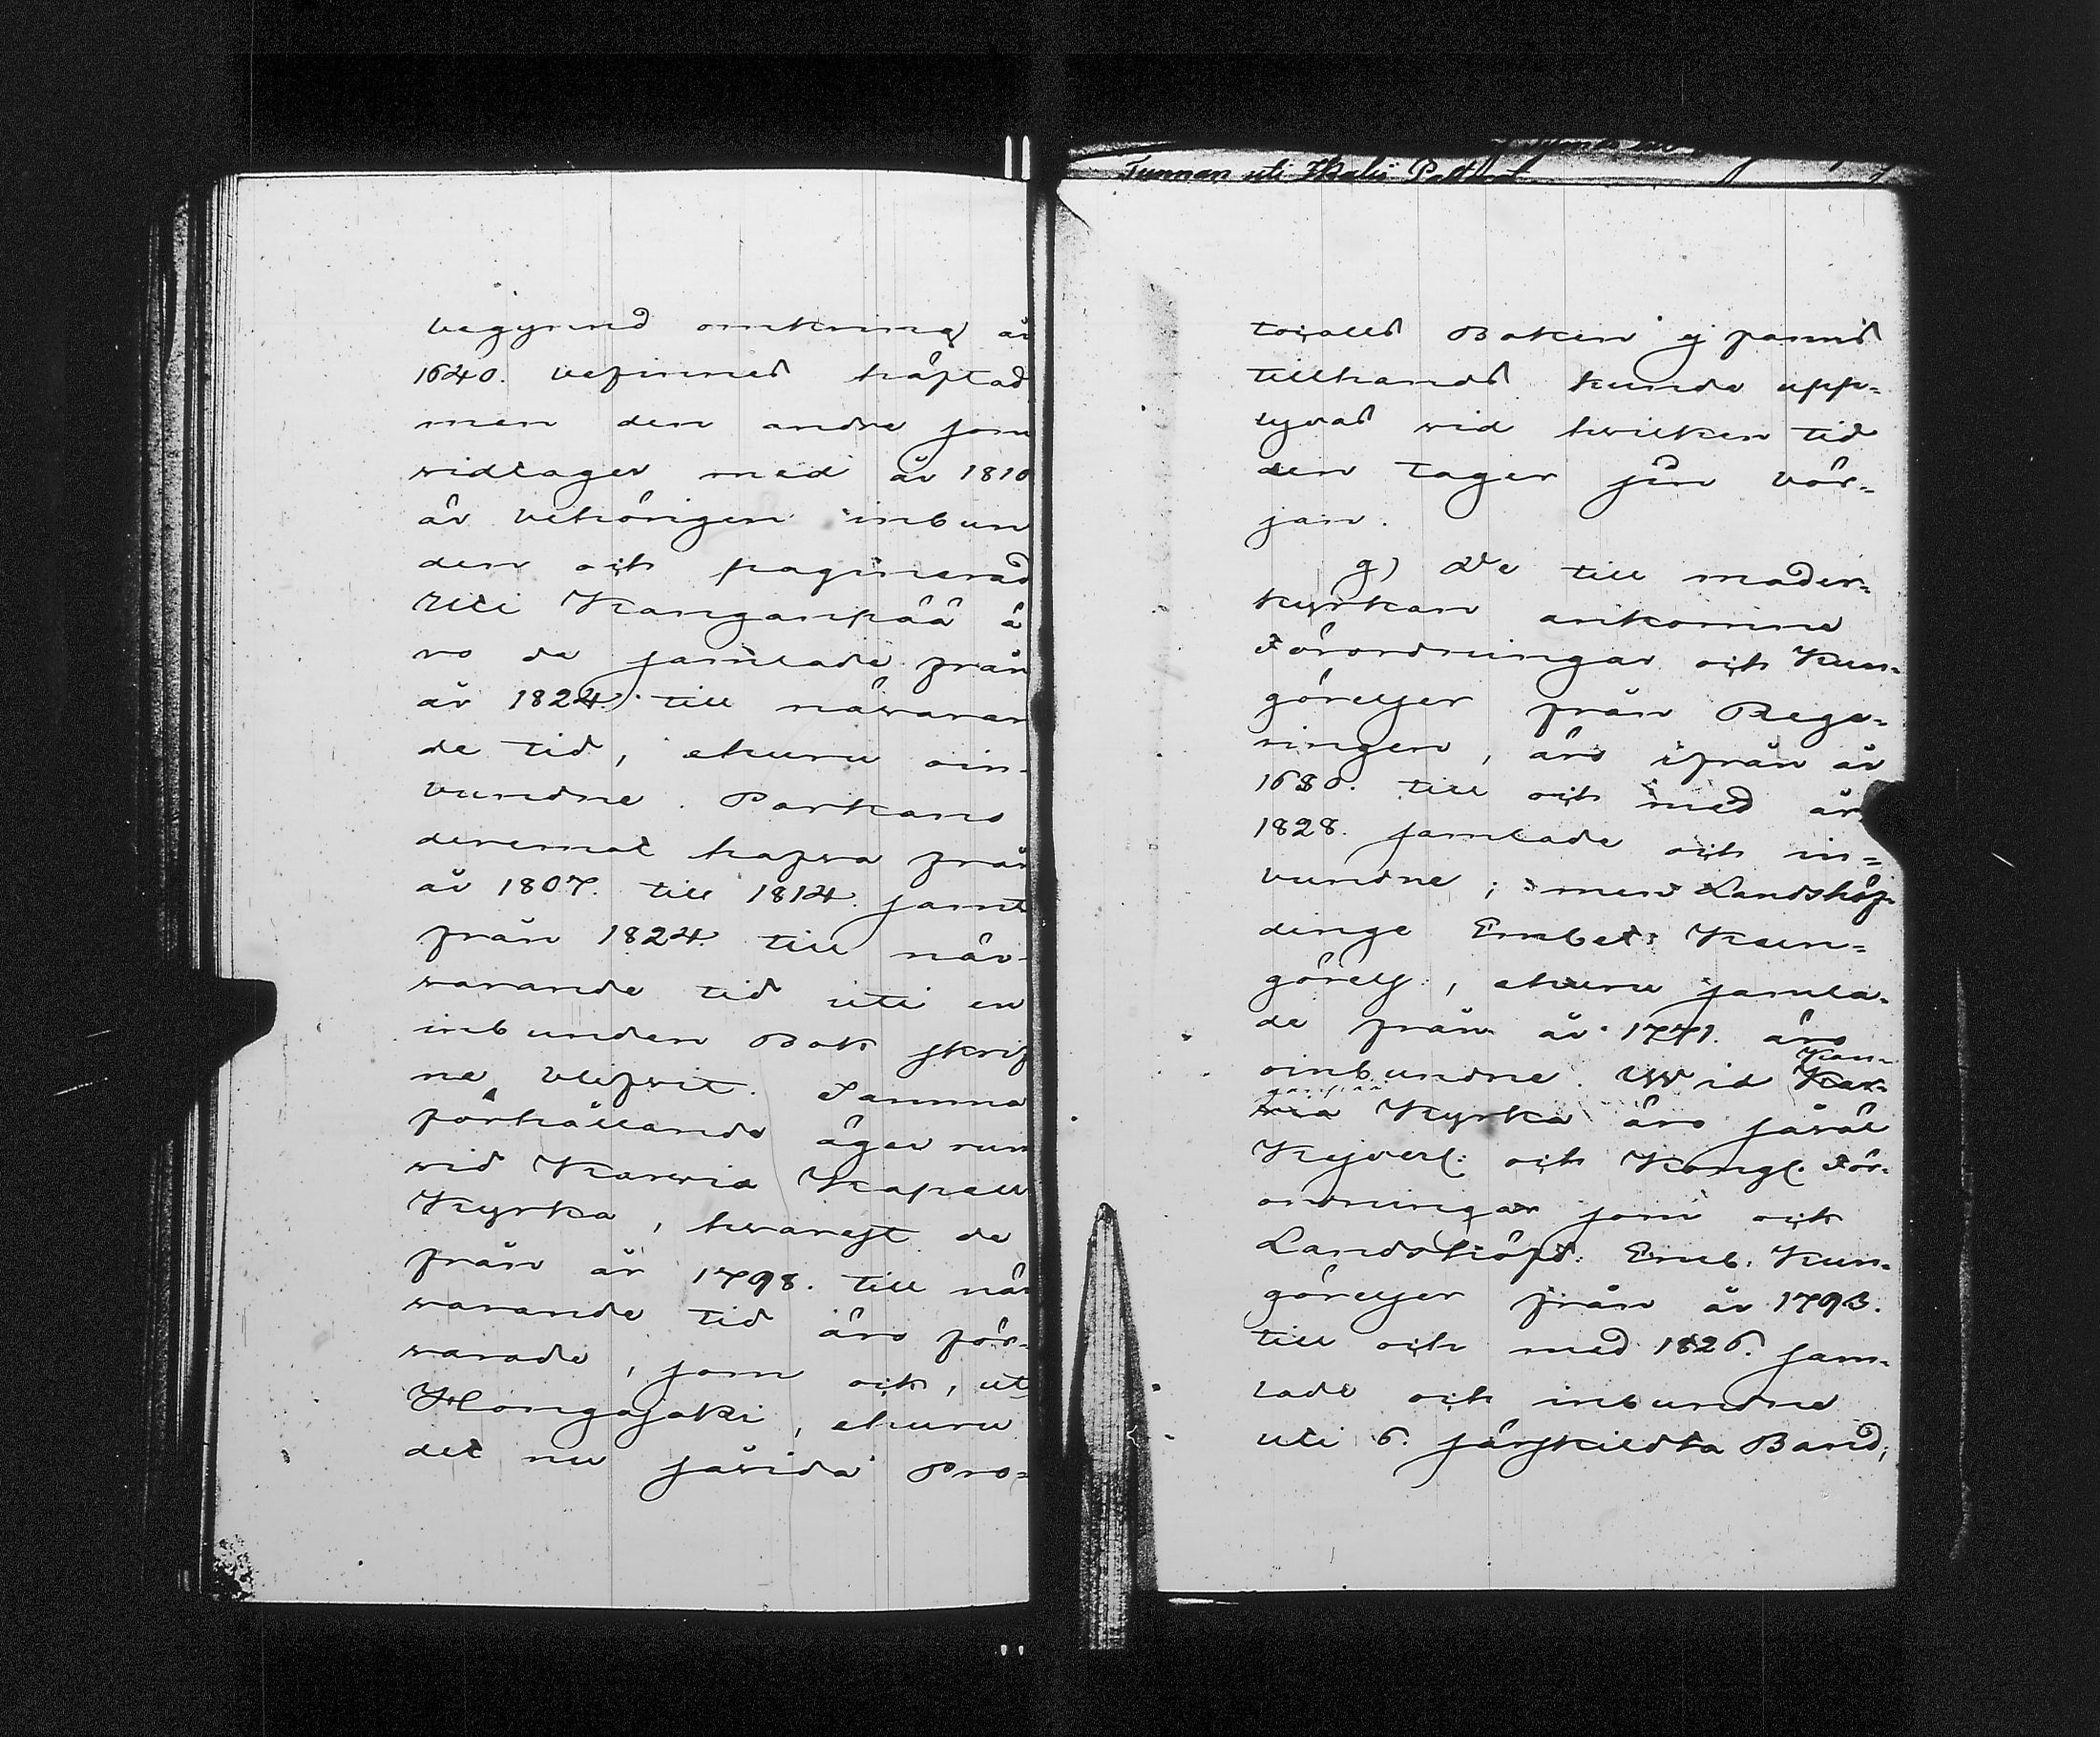 Tunnan uti Ikalis Past
begynd omkring år
1640. befinnes häftad
men den andre som
widtager med år 1810
är behörigen inbun
den och paginerad
Uti Kanganpää ä
ro de samlade från
år 1824. till närvaran
de tid, ehuru oin-
bundne. Parkano
deremot hafwa från
år 1807. till 1814. samt
från 1824. till när-
warande tid uti en
inbunden Bok skrif
ne blifvit. Samma
förhållande äger rum
wid Karvia Kapell
Kyrka, hwarest de
från år 1798. till när
warande tid äro för-
warade, som och, ut
Hongajoki, ehuru
det nu såvida Pro-
tocolls Boken ej fanns
tillhands kunde upp-
lysas wid hwilken tid
den tager sin bör-
jan.
g) De till moder-
kyrkan ankomne
Förordningar och Kun-
görelser från Rege-
ringen, äro ifrån år
1680. till och med år
1828. samlade och in-
bundne; men Landshöf-
dinge Embet: Kun-
görels:, ehuru samla-
de från år 1771. äro
oinbundne. Wid Kar- Kan-
via ganpää Kyrka äro såväl
Kejserl: och Kongl. För-
ordningar som och
Landshöfd: Emb. Kun-
görelser från år 1793.
till och med 1826. sam-
lade och inbundne
uti 6. särskildta Band;